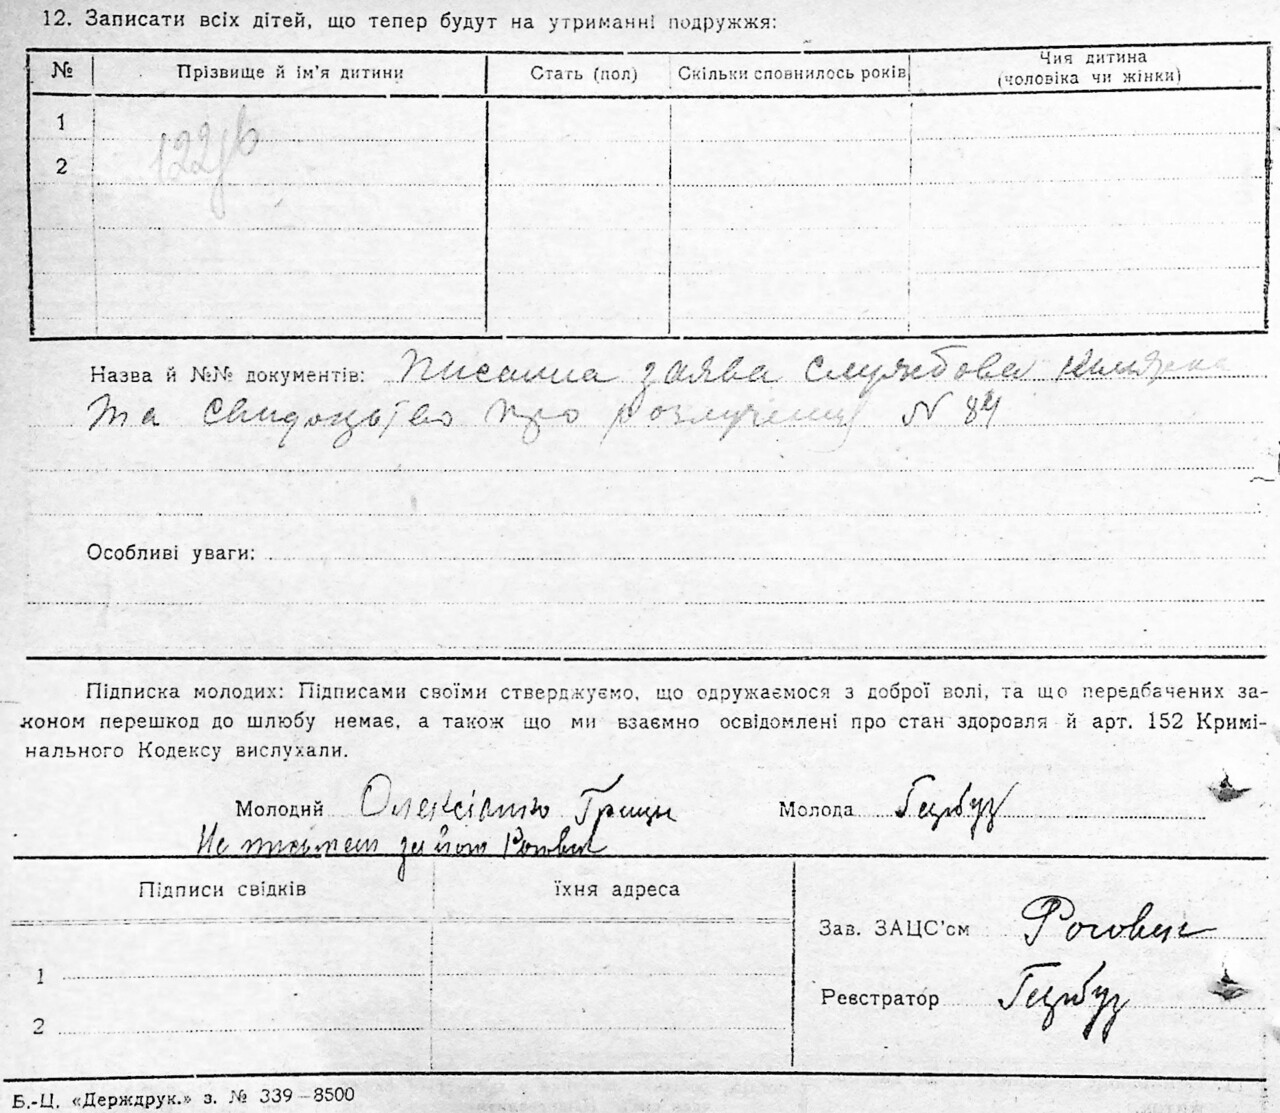 12. Записати всіх дітей, що тепер будут на утриманні подружжя:
№ Прізвище й ім’я дитини Стать (пол) Скільки сповнилось років Чия дитина
(чоловіка чи жінки)
1
2
Назва й №№ документів: писана заява службова книжка
та свидоцтво про розлучения N 84
Особливі уваги:
Підписка молодих: Підписами своїми стверджуємо, що одружаємося з доброї волі, та що передбачених за-
коном перешкод до шлюбу немає, а також що ми взаємно освідомлені про стан здоровля й арт. 152 Кримі-
нального Кодексу вислухали.
Молодий Олексієнко Молода
за його
Підписи свідків їхня адреса
Зав. ЗАЦС’ом
1
Реєстратор
2
Б.-Ц. «Держдрук.» з. № 339—8500